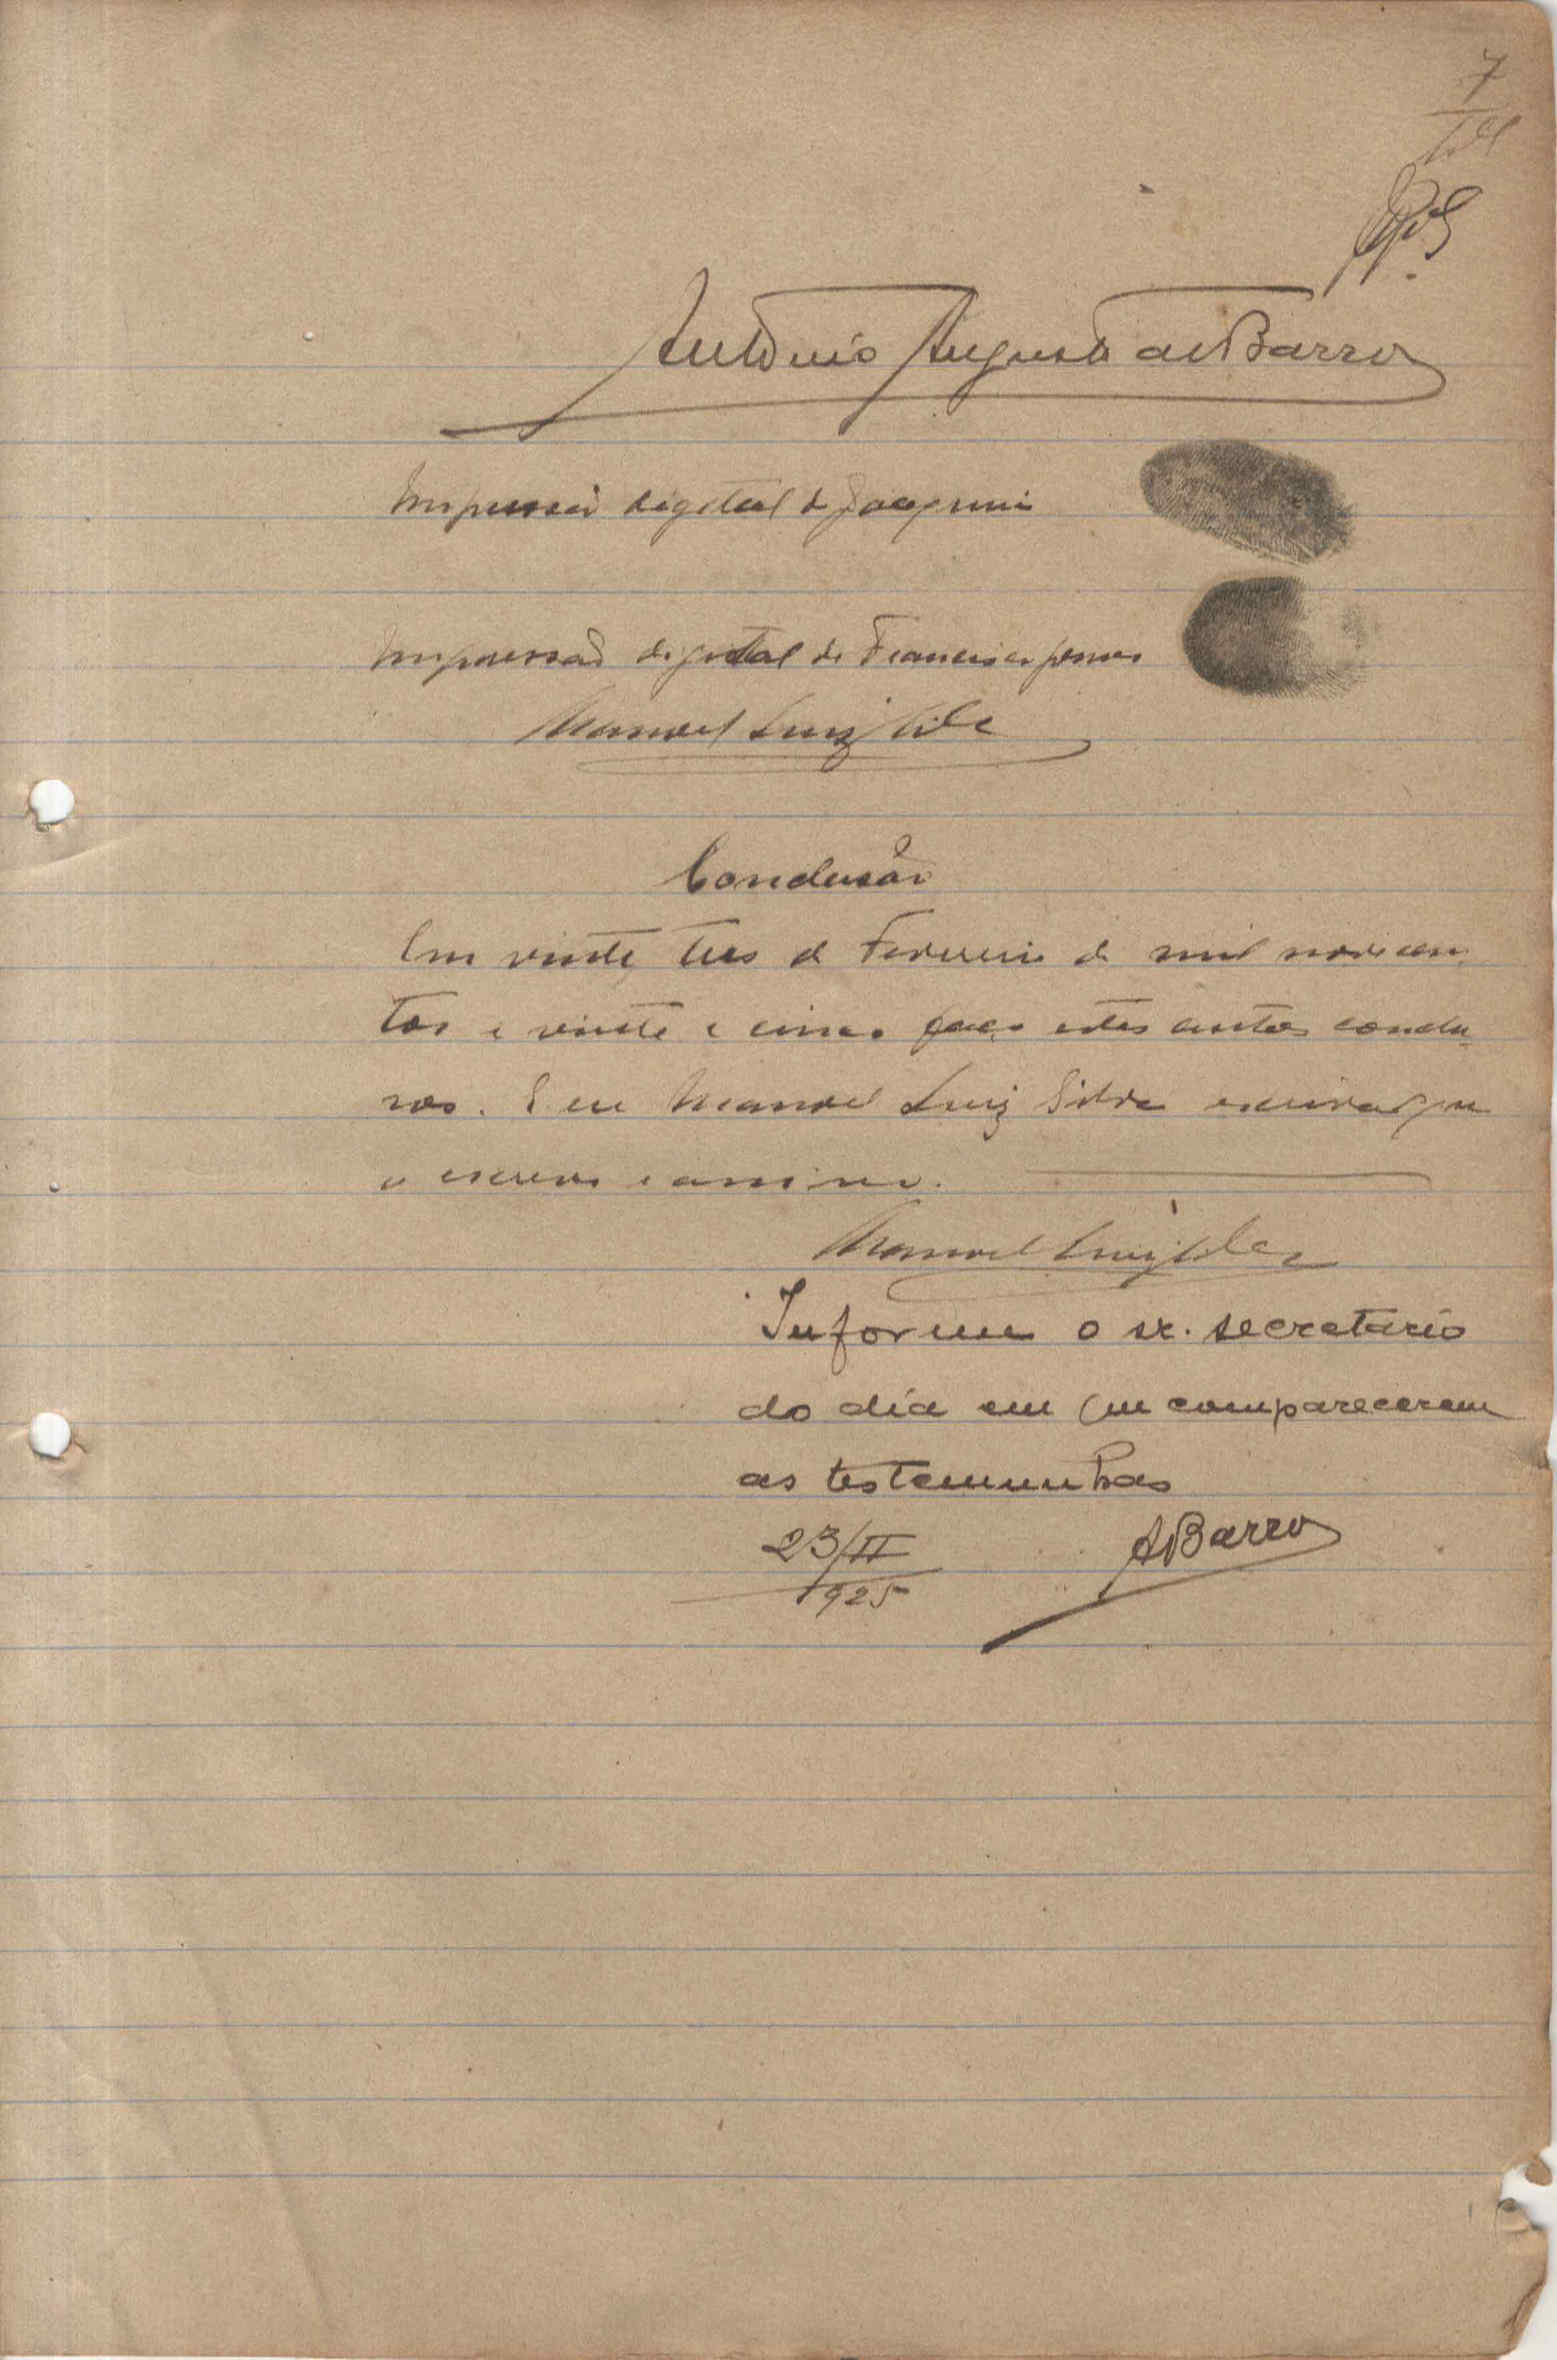 7
António Augusto de Barros
Impressão digital de Joaquim
Impressão digital de Francisco
Manoel Luiz Silva
Conclusão
Em vinte tres de Fevereiro de mil novecen
tos e vinte e cinco faço estes autos conclu
sos. E eu Manoel Luiz Silva escrivão que
o escrevi e assino.
Manoel Luiz Silva
Informe o sr. secretario
do dia em que compareceram
as testemunhas
23/II
1925
ABarros